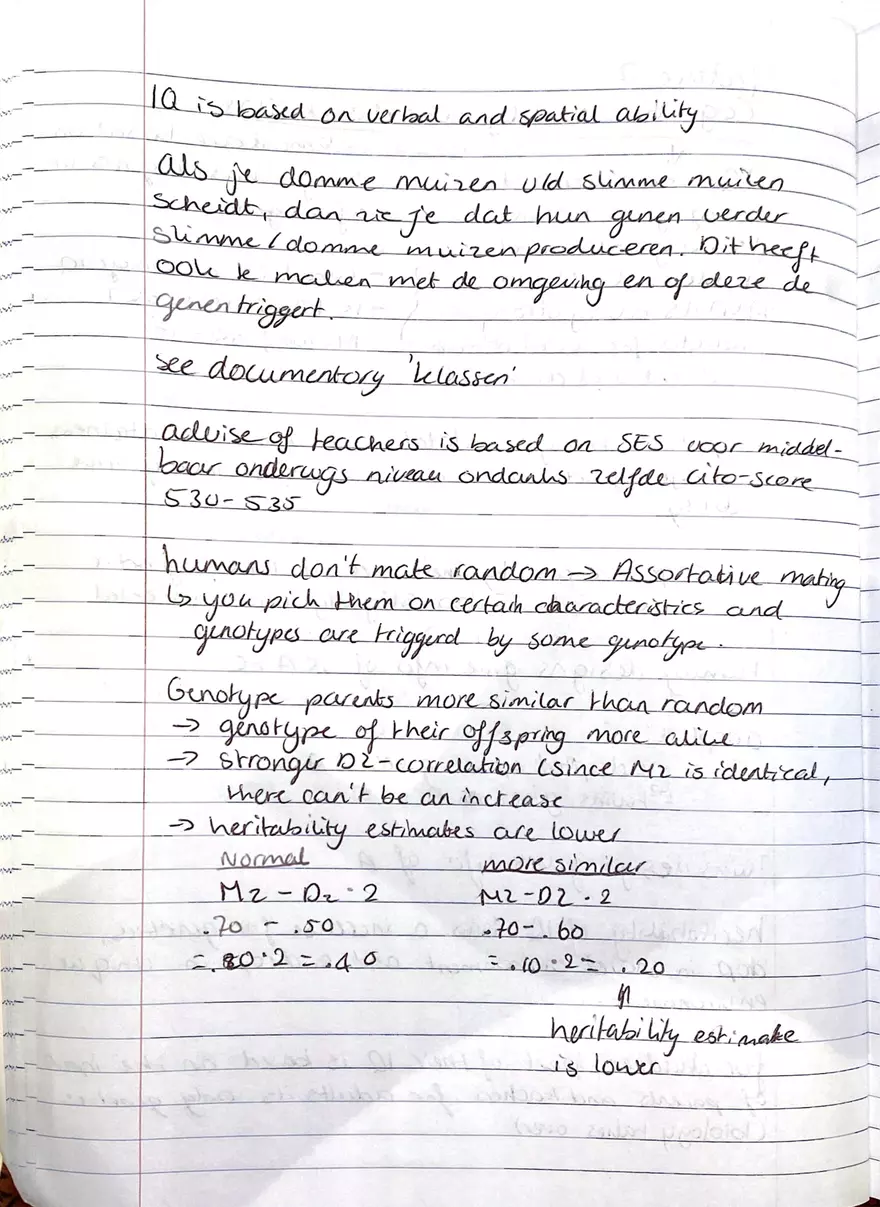 IQ is based on verbal and spatial ability
als je domme muizen v/d slimme muizen
scheidt, dan zie je dat hun genen verder
slimme / domme muizen produceren. Dit heeft
ook te maken met de omgeving en of deze de
genen triggert.
see documentory 'klassen'
advise of teachers is based on SES voor middel-
baar onderwijs niveau ondanks zelfde cito-score
530-535
humans don't mate random → Assortative mating
↳ you pick them on certain characteristics and
genotypes are triggerd by some genotype.
Genotype parents more similar than random
→ genotype of their offspring more alike
→ stronger DZ-correlation (since MZ is identical,
there can't be an increase
→ heritability estimates are lower
Normal more similar
MZ - DZ · 2 MZ - DZ · 2
.70 - .50 .70 - .60
= .20 · 2 = .40 = .10 · 2 = .20
⇑
heritability estimate
is lower